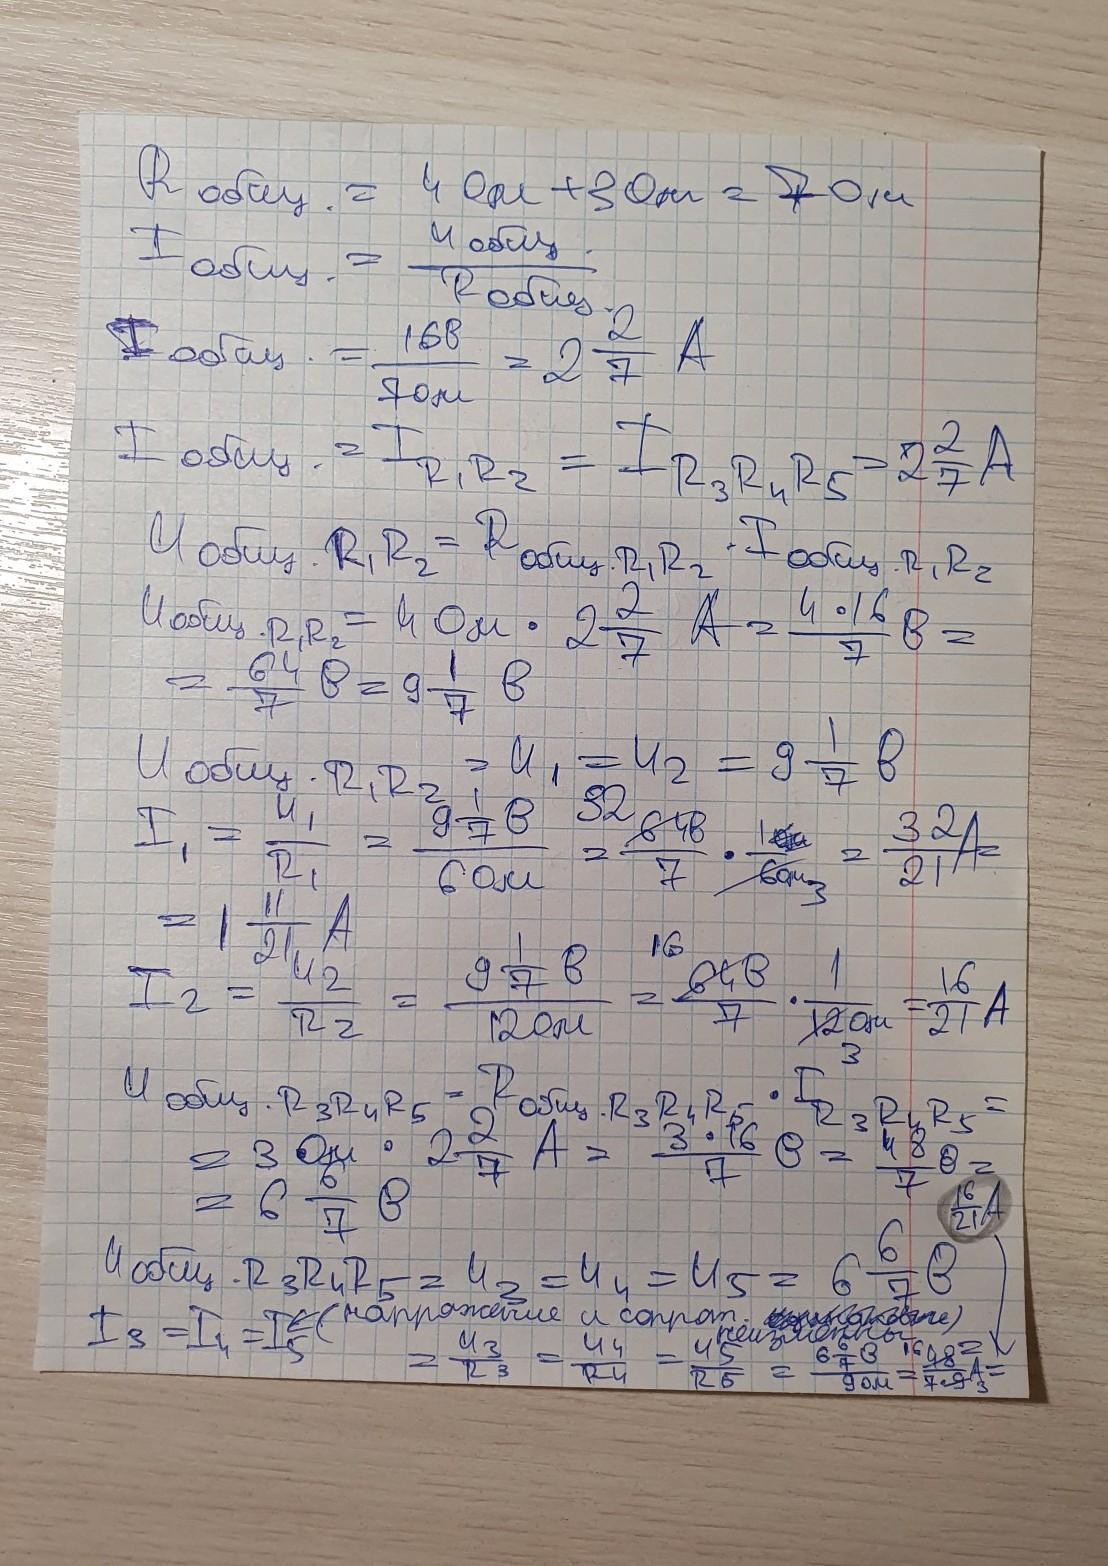 Rобщ. = 4 Ом + 3 Ом = 7 Ом
Iобщ. = Uобщ. / Rобщ.
Iобщ. = 16В / 7Ом = 2 2/7 А
Iобщ. = I R₁R₂ = I R₃R₄R₅ = 2 2/7 А
Uобщ.R₁R₂ = Rобщ.R₁R₂ · Iобщ.R₁R₂
Uобщ.R₁R₂ = 4 Ом · 2 2/7 А = 4·16/7 В =
= 64/7 В = 9 1/7 В
Uобщ.R₁R₂ = U₁ = U₂ = 9 1/7 В
I₁ = U₁/R₁ = 9 1/7 В / 6 Ом = 32 64В/7 · 1/6Ом 3 = 32/21 А =
= 1 11/21 А
I₂ = U₂/R₂ = 9 1/7 В / 12 Ом = 16 64В/7 · 1/12Ом 3 = 16/21 А
Uобщ.R₃R₄R₅ = Rобщ.R₃R₄R₅ · I R₃R₄R₅ =
= 3 Ом · 2 2/7 А = 3·16/7 В = 48/7 В =
= 6 6/7 В
16/21 А
Uобщ.R₃R₄R₅ = U₃ = U₄ = U₅ = 6 6/7 В
I₃ = I₄ = I₅ (напряжение и сопрот. неизменны)
= U₃/R₃ = U₄/R₄ = U₅/R₅ = 6 6/7 В / 9 Ом = 16 48/7·9 3 А =